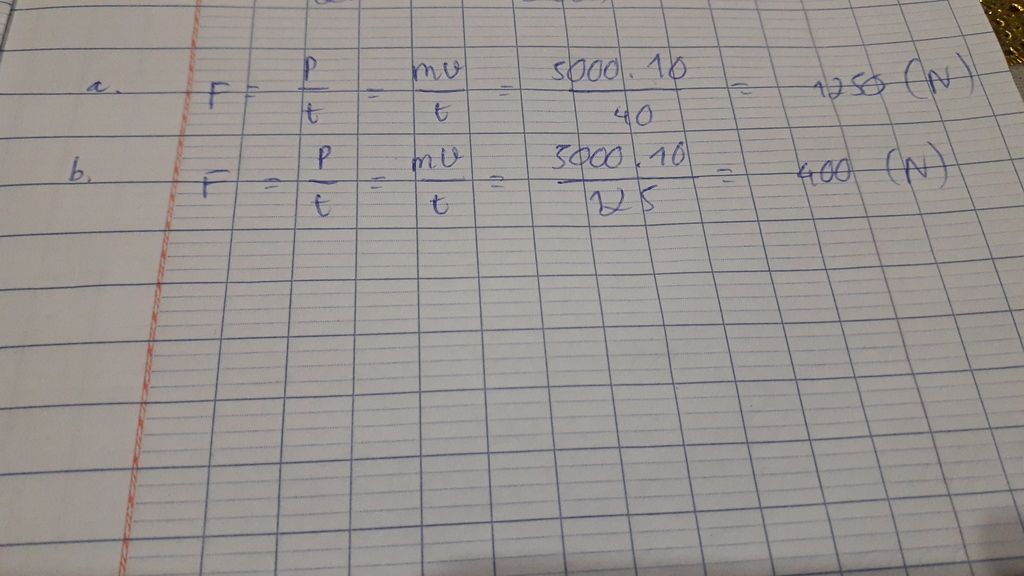 a. F = p/t = mv/t = 5000.10/40 = 1250 (N)
b. F = p/t = mv/t = 5000.10/125 = 400 (N)